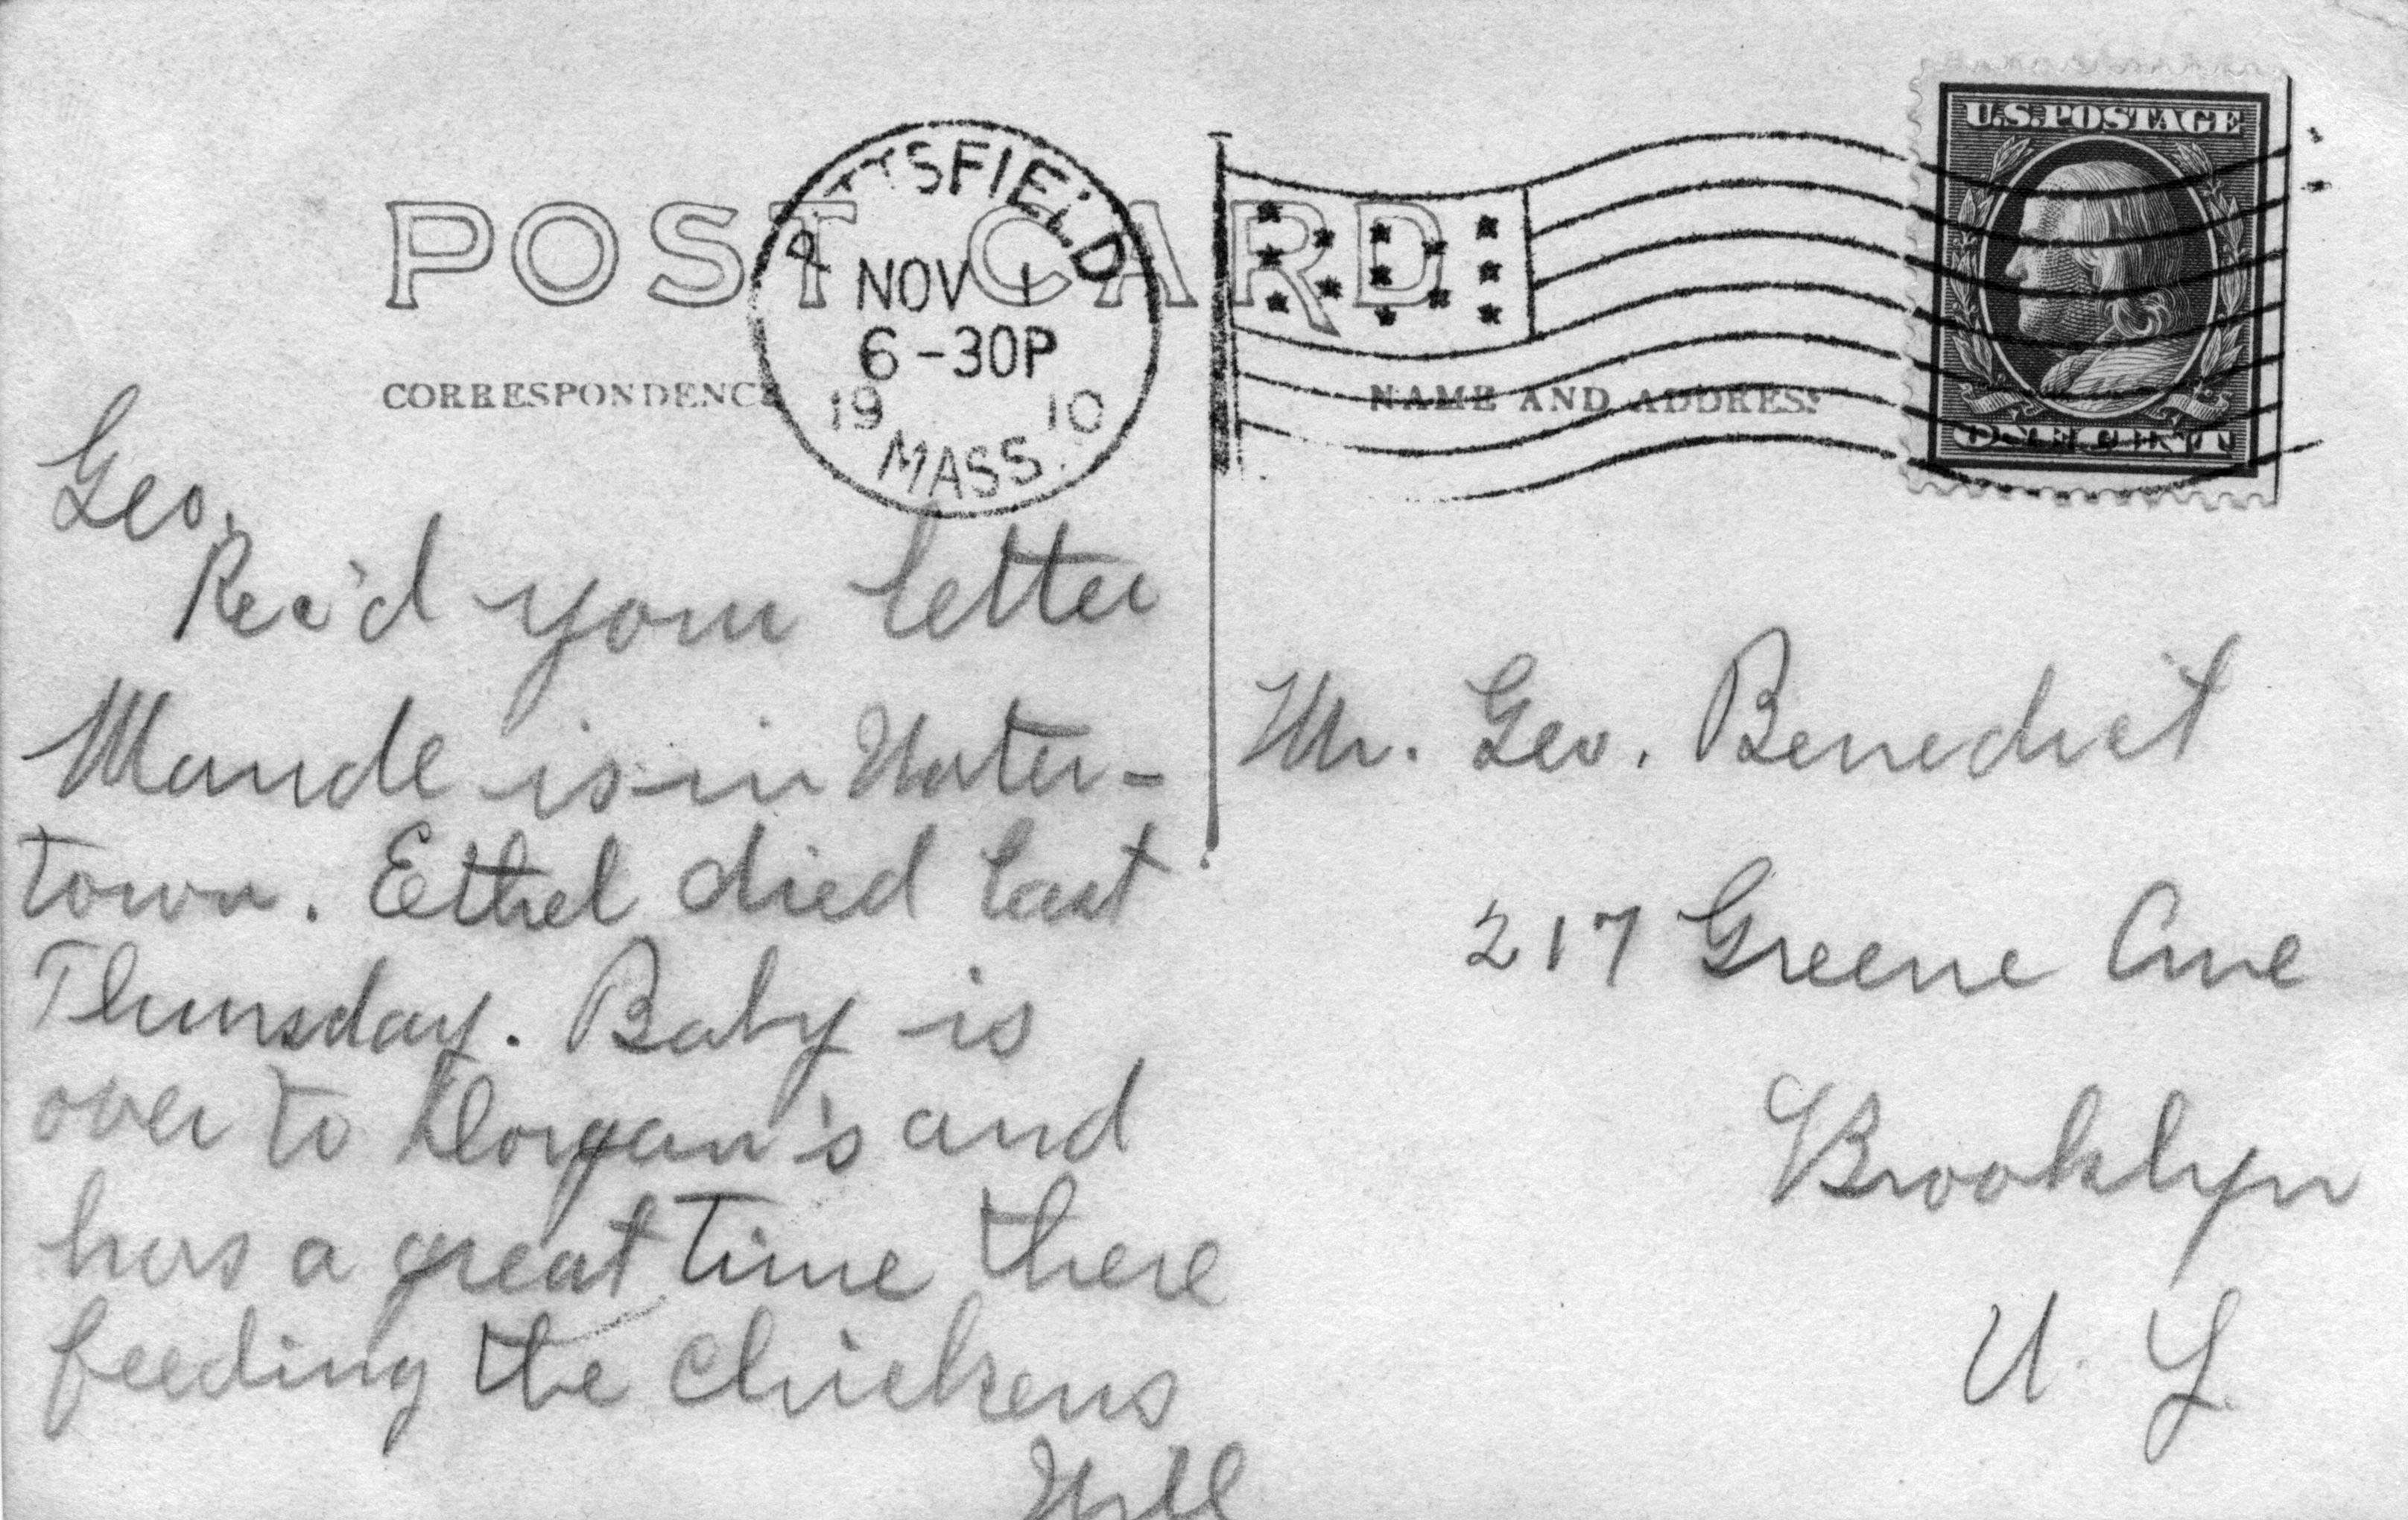 POST CARD
PITTSFIELD
NOV 1
6-30P
19 10
MASS.
U.S. POSTAGE
ONE CENT
CORRESPONDENCE
NAME AND ADDRESS
Geo.
Rec'd your letter
Maude is in Water-
town. Ethel died last
Thursday. Baby is
over to Dorgan's and
has a great time there
feeding the chickens
Will
Mr. Geo. Benedict
217 Greene Ave
Brooklyn
N. Y.